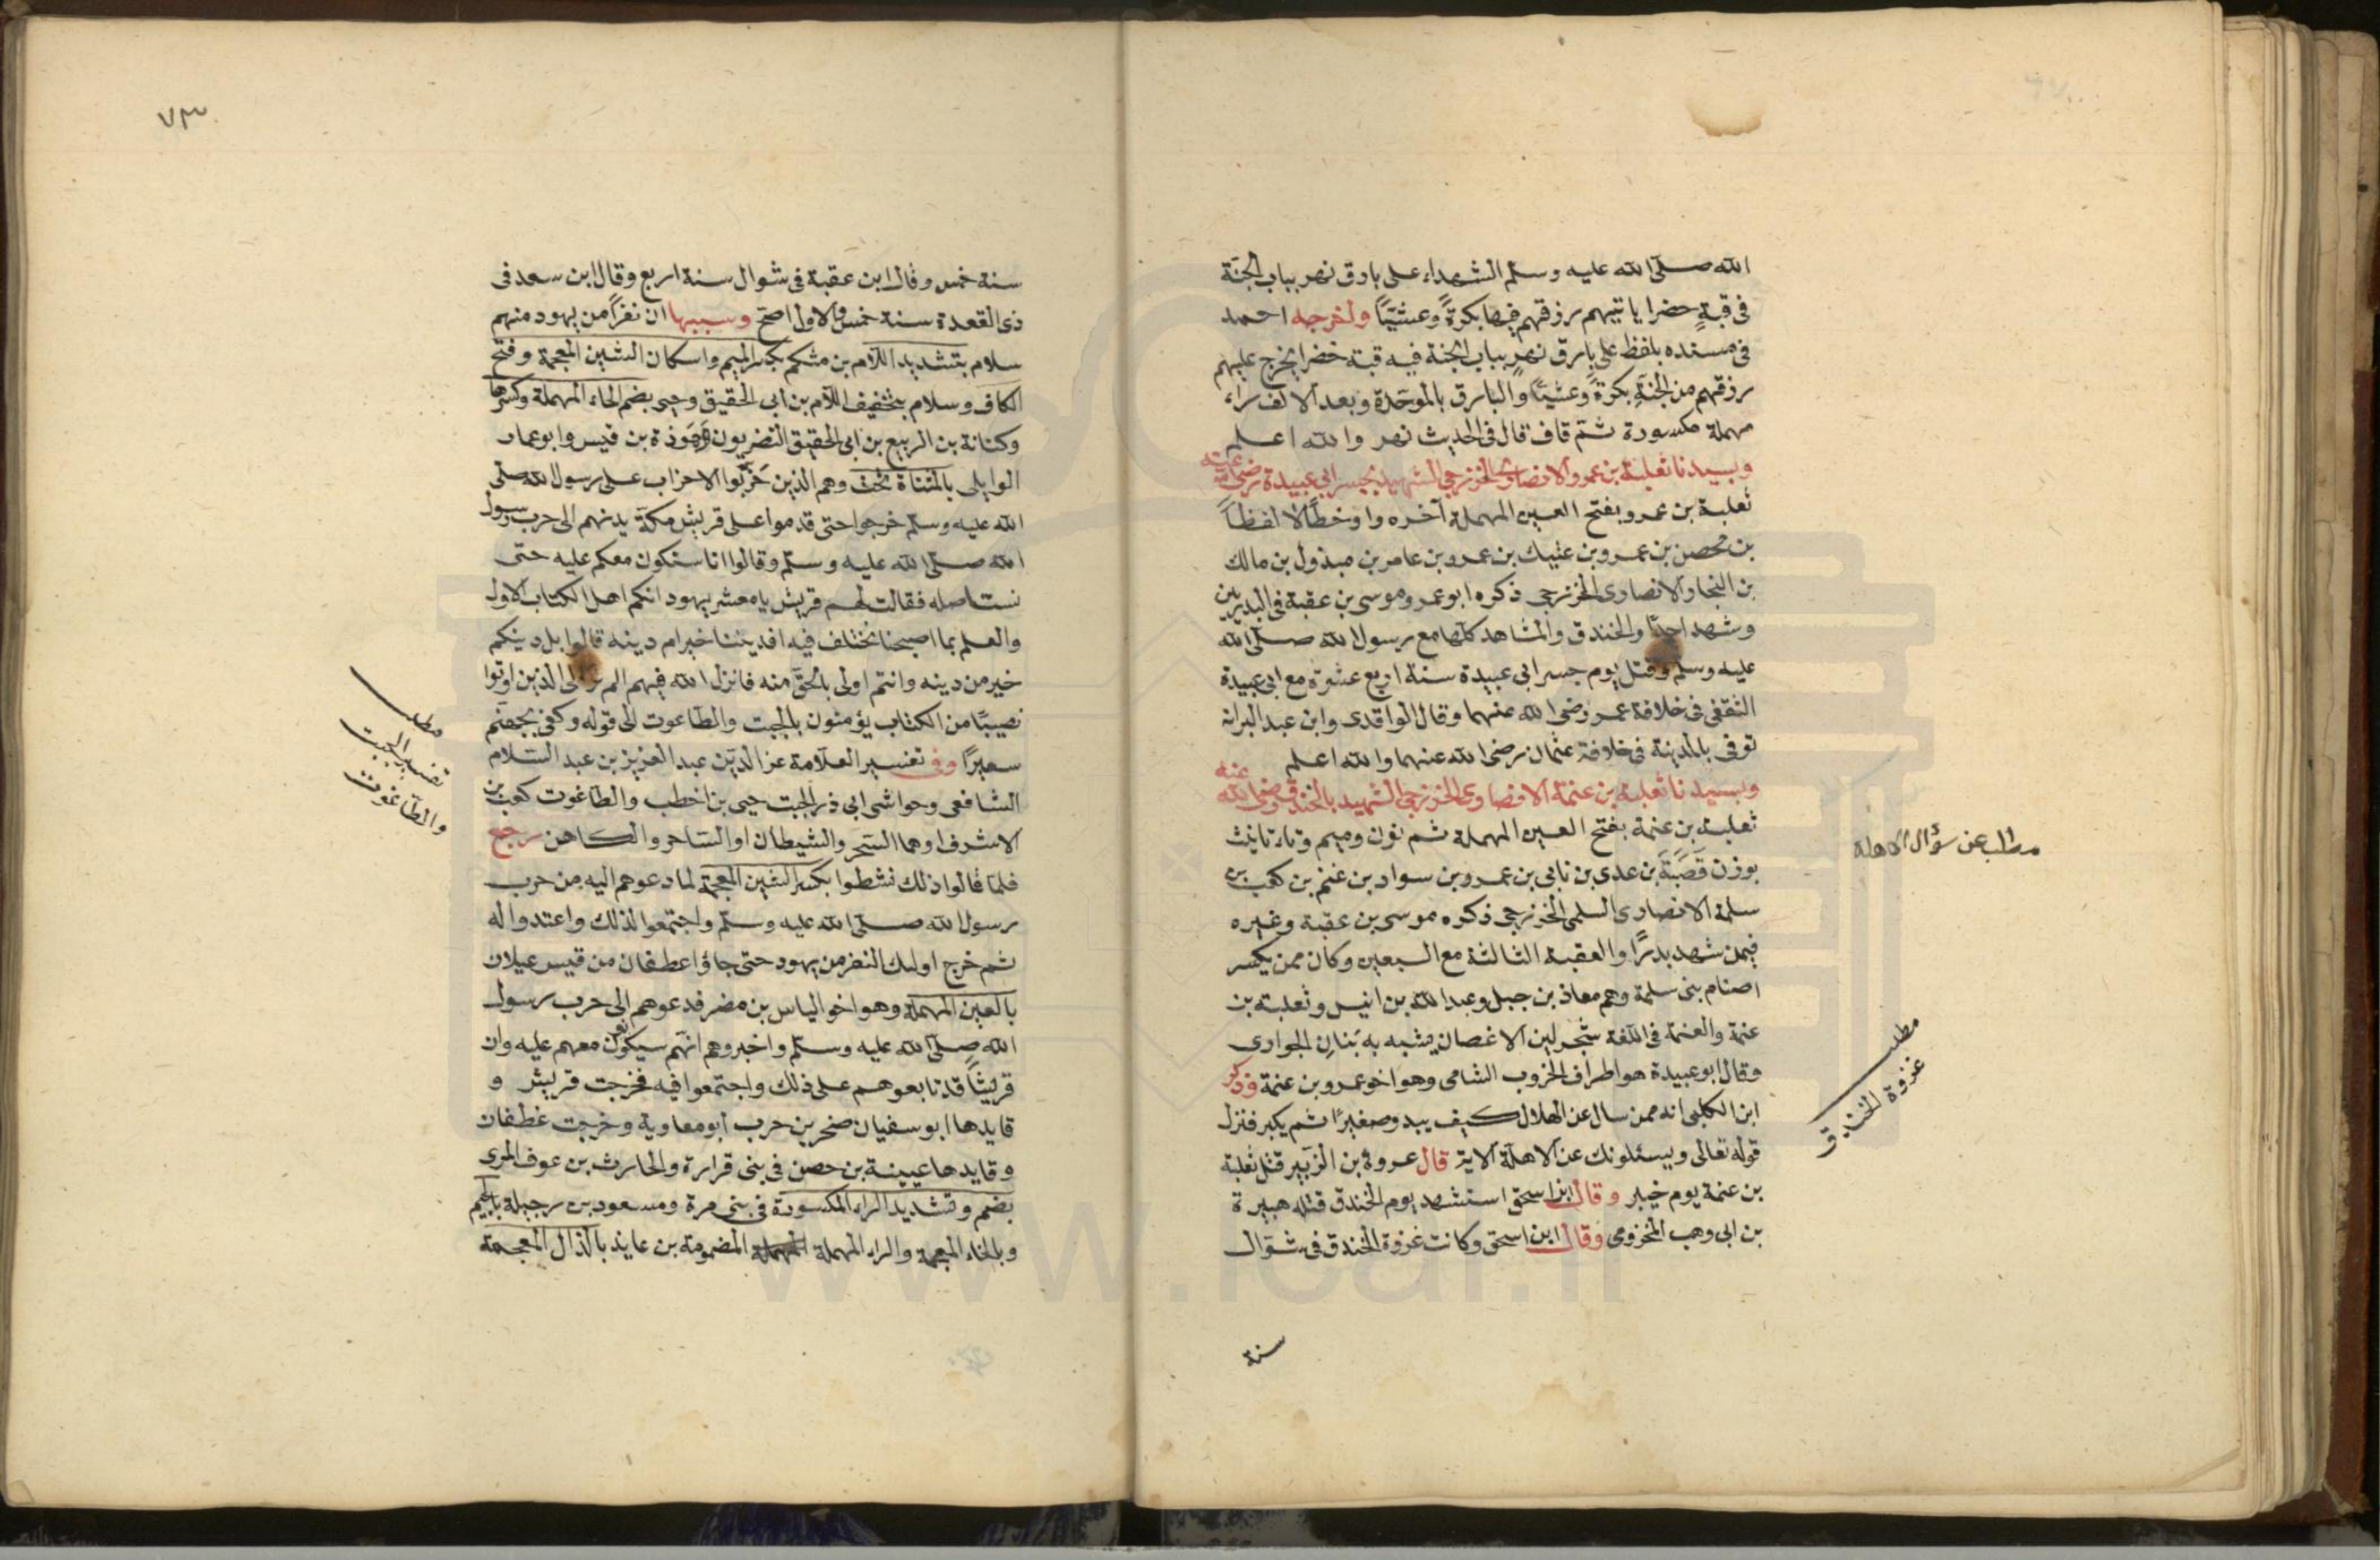 الله صلّى الله عليه وسلّم الشهداء على بارق نهر بباب الجنّة
فى قبةٍ خضرا ياتيهم رزقهم فيها بكرةً وعشيّاً واخرجه احمد
فى مسنده بلفظ على بارق نهرٍ بباب الجنة فيه قبة خضرا يخرج عليهم
رزقهم من الجنةِ بكرةً وعشيّا والبارق بالموحّدة وبعد الالف راء
مهملة مكسورة ثمّ قاف قال فى الحديث نهر والله اعلم
وبسيدنا ثعلبة بن عمرو الانصارى الخزرجى الشهيد بجسر ابى عبيدة رضى الله عنه
ثعلبة بن عمرو بفتح العين المهملة آخره واو خطّاً لا لفظاً
بن محصن بن عمرو بن عتيك بن عمرو بن عامر بن مبذول بن مالك
بن النجار الانصارى الخزرجى ذكره ابو عمر وموسى بن عقبة فى البدريين
وشهد احدًا والخندق والمشاهد كلّها مع رسول الله صلّى الله
عليه وسلم وقتل يوم جسر ابى عبيدة سنة اربع عشرة مع ابى عبيدة
الثقفى فى خلافة عمر رضى الله عنهما وقال الواقدى وابن عبد البر انه
توفى بالمدينة فى خلافة عثمان رضى الله عنهما والله اعلم
وبسيدنا ثعلبة بن عنمة الانصارى الخزرجى الشهيد بالخندق رضى الله عنه
ثعلبة بن عنمة بفتح العين المهملة ثم نون وميم وتاء تانيث
بوزن قَصَبَة بن عدى بن نابى بن عمرو بن سواد بن غنم بن كعب بن
سلمة الانصارى السلمى الخزرجى ذكره موسى بن عقبة وغيره
فيمن شهد بدرًا والعقبة الثالثة مع السبعين وكان ممن يكسر
اصنام بنى سلمة وهم معاذ بن جبل وعبد الله بن انيس وثعلبة بن
عنمة والعنمة فى اللّغة شجر لين الاغصان يشبه به بَنَانِ الجوارى
وقال ابو عبيدة هو اطراف الخروب الشامى وهو اخو عمرو بن عنمة وذكر
ابن الكلبى انه ممن سال عن الهلال كيف يبدو صغيرًا ثم يكبر فنزل
قوله تعالى ويسئلونك عن الاهلّة الاية قال عروة بن الزّبير قتل ثعلبة
بن عنمة يوم خيبر وقال ابن اسحق استشهد يوم الخندق قتله هبيرة
بن ابى وهب المخزومى وقال ابن اسحق وكانت غزوة الخندق فى شوّال
سنة
مطلب عن سؤال الاهلة
مطلب
غزوة الخندق
٧٣
سنة خمس وقال ابن عقبة فى شوال سنة اربع وقال ابن سعد فى
ذى القعدة سنة خمس والاول اصحّ وسببها ان نفراً من يهود منهم
سلام بتشديد اللّام بن مشكم بكسر الميم واسكان الشين المعجمة وفتح
الكاف وسلام بتخفيف اللّام بن ابى الحقيق وحيى بضم الحاء المهملة وكسرها
وكنانة بن الربيع بن ابى الحقيق النضريون وهَوذة بن قيس وابو عمار
الوايلى بالمثناة تحت وهم الذين حَزّبوا الاحزاب على رسول الله صلّى
الله عليه وسلّم خرجوا حتى قدموا على قريش مكّة يدعوهم الى حرب رسول
الله صلّى الله عليه وسلّم وقالوا انا سنكون معكم عليه حتى
نستاصله فقالت لهم قريش يا معشر يهود انكم اهل الكتاب الاول
والعلم بما اصبحنا نختلف فيه افديننا خير ام دينه قالوا بل دينكم
خير من دينه وانتم اولى بالحقّ منه فانزل الله فيهم الم تر الى الذين اوتوا
نصيبًا من الكتاب يؤمنون بالجبت والطّاغوت الى قوله وكفى بجهنّم
سعيرًا وفى تفسير العلّامة عز الدّين عبد العزيز بن عبد السّلام
الشافعى وحواشى ابى ذر الجبت حيى بن اخطب والطاغوت كعب بن
الاشرف او هما السّحر والشيطان او السّاحر والكاهن رجع
فلمّا قالوا ذلك نشطوا بكسر الشين المعجمة لما دعوهم اليه من حرب
رسول الله صلّى الله عليه وسلّم واجتمعوا لذلك واعتدوا له
ثم خرج اولئك النفر من يهود حتى جاؤا غطفان من قيس عيلان
بالعين المهملة وهو اخو الياس بن مضر فدعوهم الى حرب رسول
الله صلّى الله عليه وسلّم واخبروهم انهم سيكون معهم عليه وان
قريشاً قد تابعوهم على ذلك واجتمعوا فيه فخرجت قريش و
قايدها ابو سفيان صخر بن حرب ابو معاوية وخرجت غطفان
وقايدها عيينة بن حصن فى بنى فزارة والحارث بن عوف المرى
بضم وتشديد الراء المكسورة فى بنى مرة ومسعود بن رجيلة بالجيم
وبالخاء المعجمة والراء المهملة المضمومة بن عايذ بالذال المعجمة
مطلب
تفسير الجبت
والطّاغوت